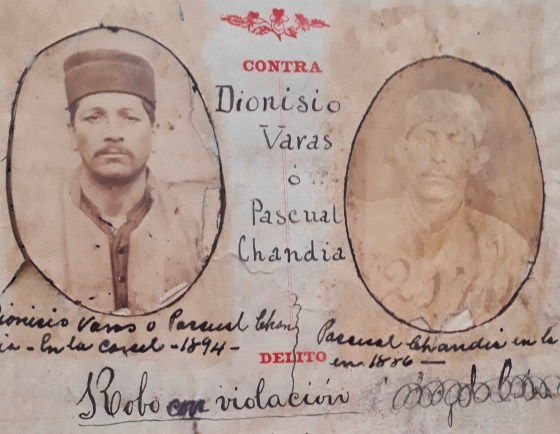 CONTRA
Dionisio
Varas
ó
Pascual
Chandia
217
Dionisio Varas o Pascual Chan
dia - En la carcel - 1894 -
Pascual Chandia en la
en 1886 —
DELITO
Robo con violación